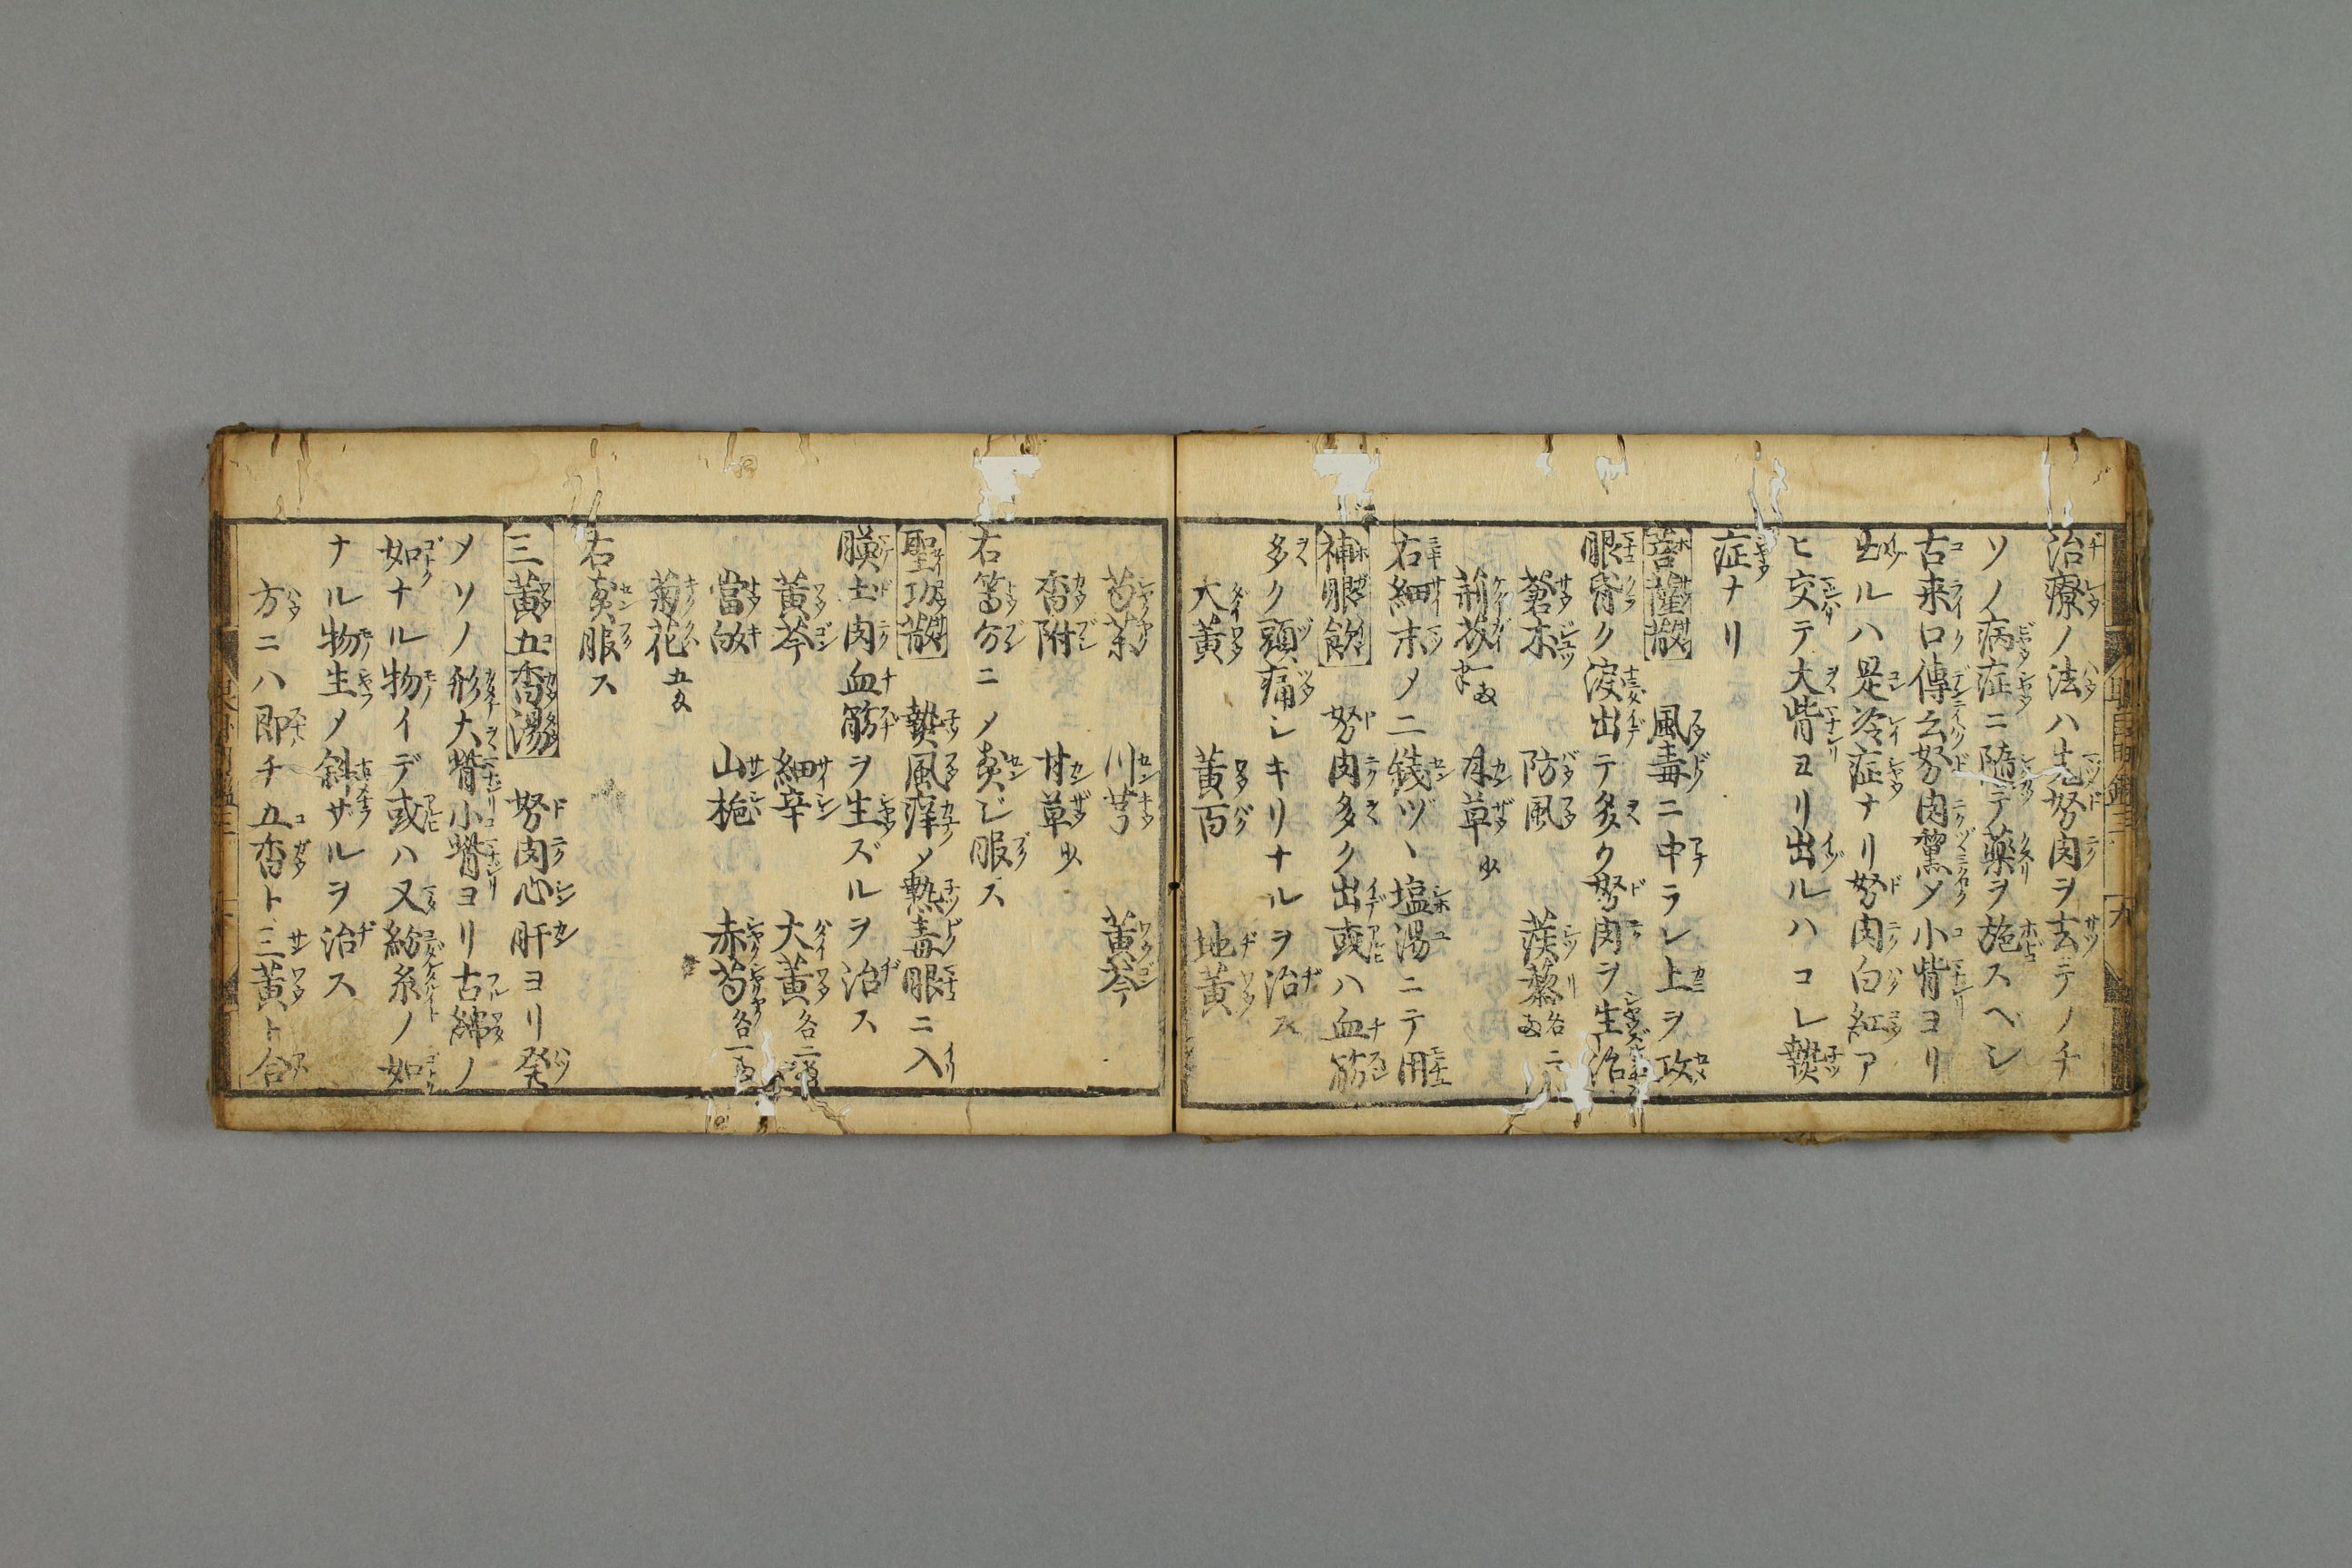 治療ノ法ハ先努肉ヲ去テノチ
ソノ病症ニ隨テ藥ヲ施スヘシ
古来口傳云努肉黧メ小眥ヨリ
出ルハ是冷症ナリ努肉白紅ア
ヒ交テ大眥ヨリ出ルハコレ𤍠
症ナリ
菩薩散 風毒ニ中ラレ上ヲ攻
眼昏ク淚出テ多ク努肉ヲ生治
蒼朮 防風 蒺藜各二
荊芥一両半 甘草少
右細末メ二錢ヅヽ塩湯ニテ用
補眼飲 努肉多ク出或ハ血筋
多ク頭痛シキリナルヲ治ス
大黃 黃百 地黃
芍藥 川芎 黃芩
香附 甘草少
右等分ニメ煎じ服ス
聖功散 𤍠風痒メ熱毒眼ニ入
胬肉血筋ヲ生ズルヲ治ス
黃芩 細辛 大黃各二
當皈 山梔 赤芍各一
菊花五分
右煎服ス
三黃五香湯 努肉心肝ヨリ発
メソノ形大眥小眥ヨリ古綿ノ
如ナル物イデ或ハ又紛糸ノ如
ナル物生メ斜ザルヲ治ス
方ニハ即チ五香ト三黃ト合